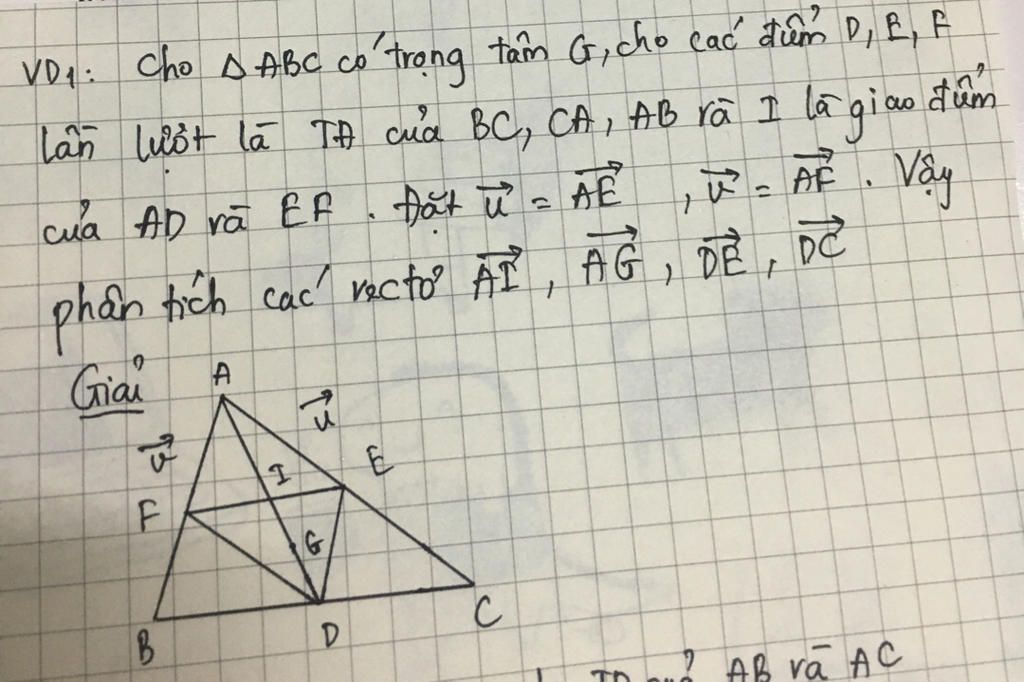 VD1: Cho △ABC có trọng tâm G, cho các điểm D, E, F
lần lượt là TĐ của BC, CA, AB và I là giao điểm
của AD và EF. Đặt u⃗ = AE⃗ , v⃗ = AF⃗ . Vậy
phân tích các vectơ AI⃗ , AG⃗ , DE⃗ , DC⃗
Giải
A
u⃗
v⃗
I
E
F
G
B
D
C
AB và AC